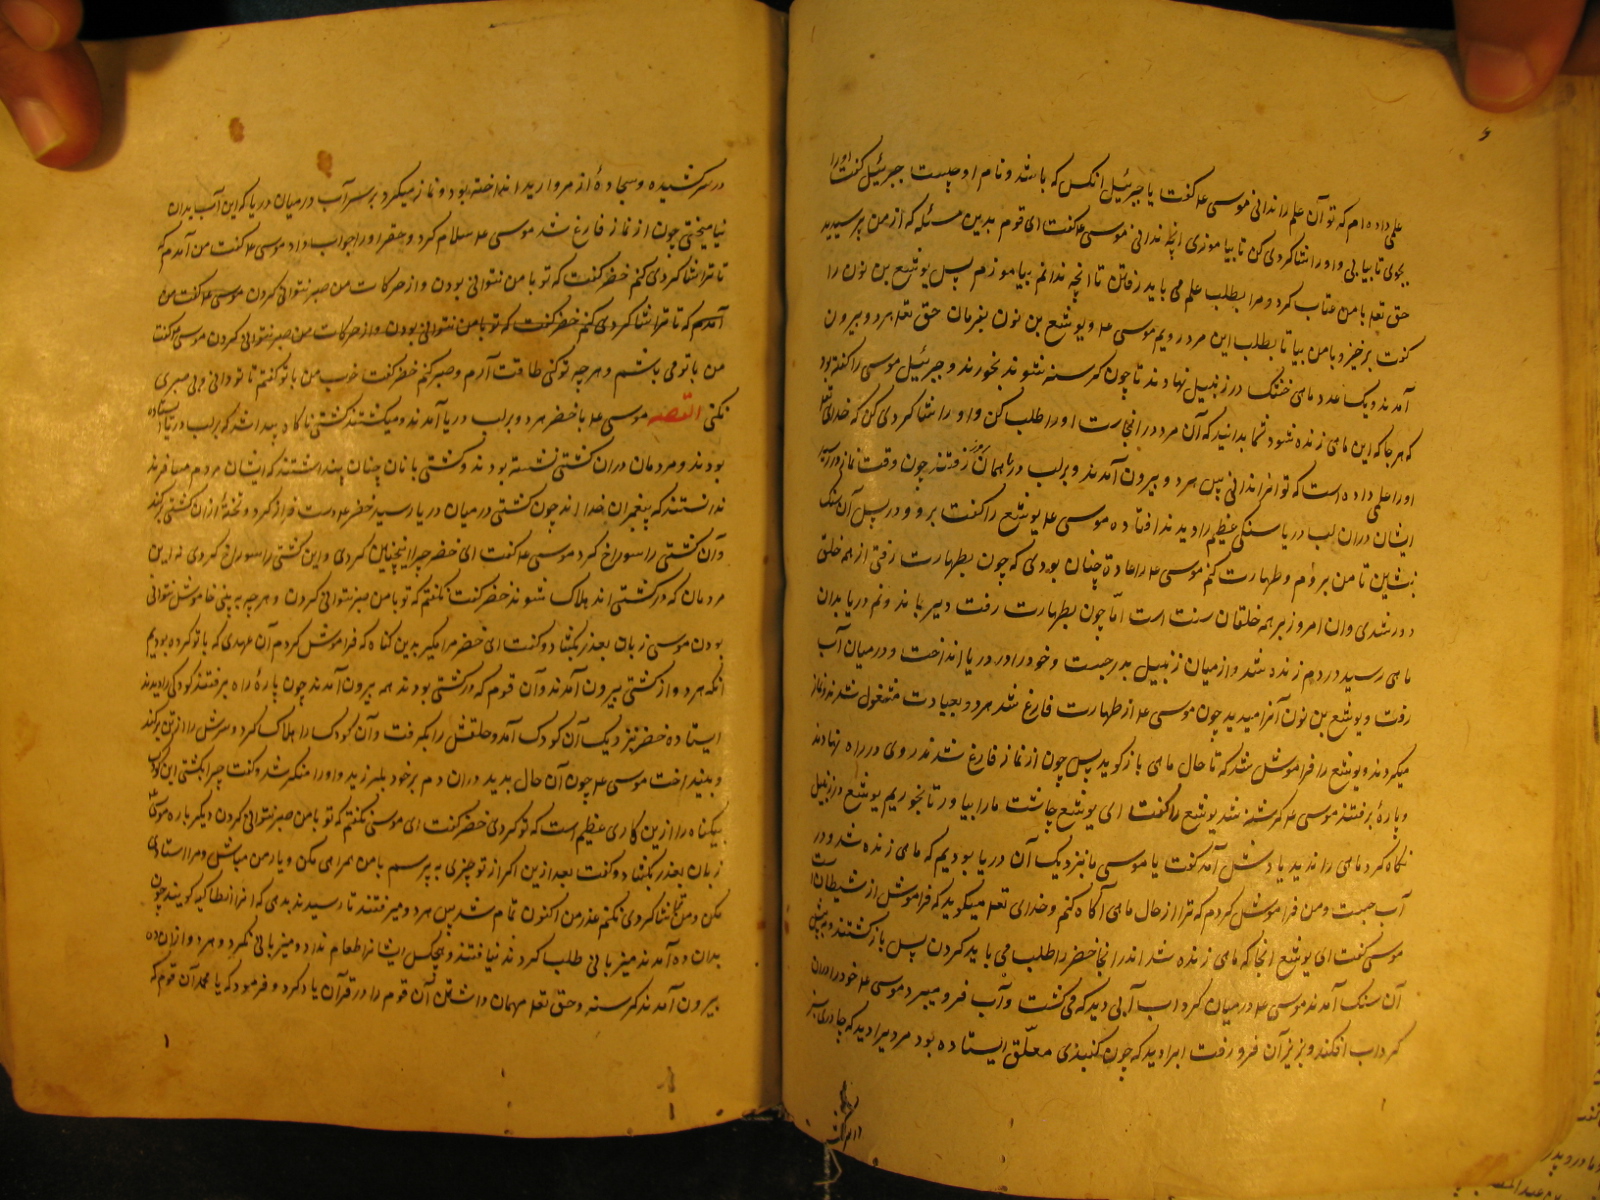 علمی داده ام که تو آن علم را ندانی موسی ع م گفت یا جبرئیل انکس که باشد و نام او چیست جبرئیل کفت اورا
بجوی تا بیابی و اورا شاکردی کن تا بیاموزی انچه ندانی موسی ع م گفت ای قوم بدین مسئله که از من پرسیدید
حق تعه با من عتاب کرد و مرا بطلب علم می باید رفتن تا انچه ندانم بیاموزم پس یوشع بن نون را
کفت برخیز و با من بیا تا بطلب این مرد رویم موسی ع م و یوشع بن نون بفرمان حق تعه هر دو بیرون
آمدند و یک عدد ماهی خشک در زنبیل نهادند تا چون کرسنه شوند بخورند و جبرئیل موسی را کفته بود
که هر جا که این ماهی زنده شود شما بدانید که آن مرد در انجاست اورا طلب کن و اورا شاکردی کن که خدای تعه
اورا علمی داده است که تو انرا ندانی پس هر دو بیرون آمدند و بر لب دریا همان رفتند چون وقت نماز در آمد
ایشان دران لب دریا سنکی عظیم را دیدند افتاده موسی ع م یوشع را کفت برو و در پس آن سنک
بنشین تا من بروم و طهارت کنم موسی ع م را عادة چنان بودی که چون بطهارت رفتی از همه خلق
دور شدی وان امروز بر همه خلقان سنت است امّا چون بطهارت رفت دیر باند و نم دریا بدان
ماهی رسید در دم زنده شد و از میان زنبیل بدر جست و خود را در دریا انداخت و در میان آب
رفت و یوشع بن نون آنرا میدید چون موسی ع م از طهارت فارغ شد هر دو بعبادت مشغول شدند و نماز
میکردند و یوشع را فراموش شد که تا حال ماهی باز کوید پس چون از نماز فارغ شدند روی در راه نهادند
و پارهٔ برفتند موسی ع م کرسنه شد یوشع را کفت ای یوشع چاشت مارا بیاور تا بخوریم یوشع در زنبیل
نکاه کرد ماهی را ندید یا دشل آمد کفت یا موسی ما بنزدیک آن دریا بودیم که ماهی زنده شد و در
آب جست و من فراموش کردم که ترا از حال ماهی آکاه کنم و خدای تعه میکوید که فراموش از شیطان است
موسی کفت ای یوشع انجا که ماهی زنده شد اندر انجا خضر را طلب می باید کردن پس باز کشتند و پیش
آن سنک آمدند موسی ع م در میان کرداب آبی دید که می کشت و آب فرو میبرد موسی ع م خود را در ان
کرداب افکند و بزیر آن فرو رفت ابرا دید که چون کنبذی معلّق ایستاده بود مردیرا دید که چادری سبز
در سر کشیده و سجادهٔ از مروارید انداخته بود و نماز میکرد بر سر آب در میان دریا که این آب بدان
نیامیختی چون از نماز فارغ شد موسی ع م سلام کرد و خضر اورا جواب داد موسی ع م کفت من آمدم که
تا ترا شاکردی کنم خضر کفت که تو با من نتوانی بودن و از حرکات من صبر نتوانی کردن موسی ع م کفت من
آمدم که تا ترا شاکردی کنم خضر کفت که تو با من نتوانی بودن و از حرکات من صبر نتوانی کردن موسی ع م کفت
من با تو می باشم و هر چه تو کنی طاقت آرم و صبر کنم خضر کفت خوب من با تو کفتم تا تو دانی و بی صبری
نکنی القصه موسی ع م با خضر هر دو بر لب دریا آمدند و میکشتند کشتی ناکاه پیدا شد که بر لب دریا ایستاده
بودند و مردمان دران کشتی نشسته بودند و کشتی با نان چنان پنداشتند که ایشان مردم مسافرند
ندانستند که پیغمبران خدا اند چون کشتی در میان دریا رسید خضر ع م دست فراز کرد و تختهٔ ازان کشتی برکند
و آن کشتی را سوراخ کرد موسی ع م کفت ای خضر چرا اینچنین کردی و این کشتی را سوراخ کردی نه این
مردمان که در کشتی اند هلاک شوند خضر کفت نکفتم که تو با من صبر نتوانی کردن و هر چه بینی خاموش نتوانی
بودن موسی زبان بعذر بکشاد و کفت ای خضر مرا مکیر بدین کناه که فراموش کردم آن عهدی که با تو کرده بودیم
انکه هر دو از کشتی بیرون آمدند و آن قوم که در کشتی بودند همه بیرون آمدند چون پارهٔ راه برفتند کودکی را دیدند
ایستاده خضر نزدیک آن کودک آمد و حلقش را بکرفت و آن کودک را هلاک کرد و سرش را از تن برکند
و بینداخت موسی ع م چون آن حال بدید دران دم بر خود بلرزید و اورا منکر شد و کفت چرا بکشتی این کودک
بیکناه را ازین کاری عظیم است که تو کردی خضر کفت ای موسی نکفتم که تو با من صبر نتوانی کردن دیکر باره موسی ع م
زبان بعذر بکشاد و کفت بعد ازین اکر از تو چیزی به پرسم با من همراهی مکن و یار من مباش و مرا استادی
مکن و من ترا شاکردی نکنم عذر من اکنون تمام شد پس هر دو میرفتند تا رسیدند بدهی که انرا انطاکیه کویند چون
بدان ده آمدند میزبانی طلب کردند نیافتند و هیچکس ایشانرا طعام نداد و میزبانی نکرد و هر دو ازان ده
بیرون آمدند کرسنه و حق تعه مهمان داشتن آن قوم را در قرآن یاد کرد و فرمود که یا محمد آن قوم که